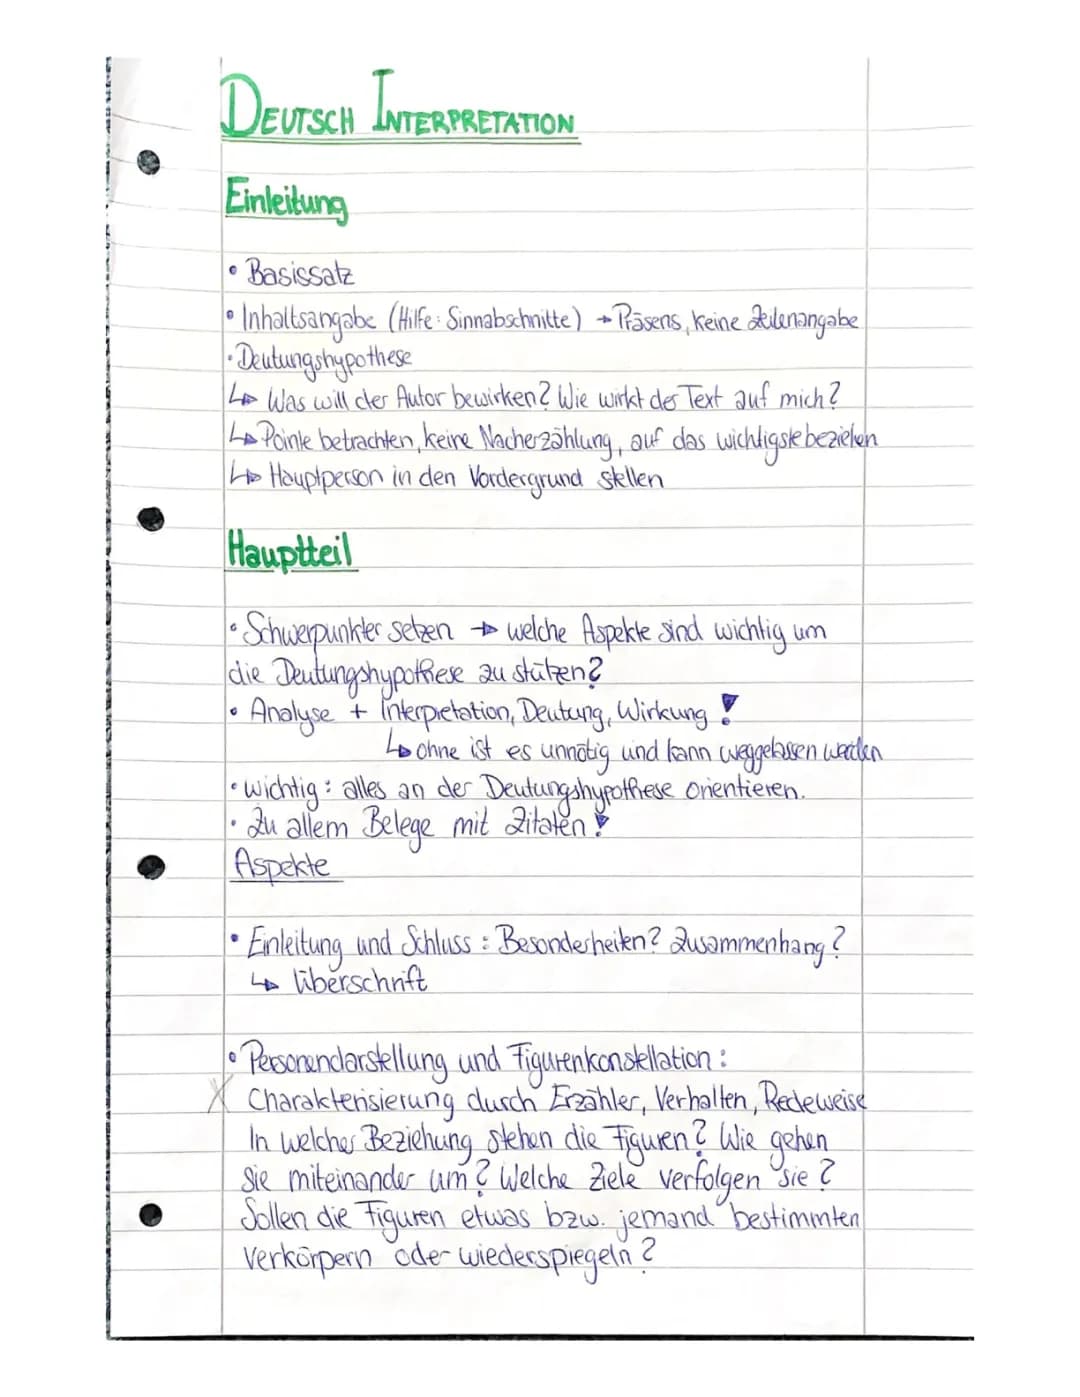 DEUTSCH INTERPRETATION
Einleitung
• Basissatz
• Inhaltsangabe (Hilfe: Sinnabschnitte) → Präsens, keine Zeilenangabe
• Deutungshypothese
↳ Was will der Autor bewirken? Wie wirkt der Text auf mich?
↳ Pointe betrachten, keine Nacherzählung, auf das wichtigste beziehen
↳ Hauptperson in den Vordergrund stellen
Hauptteil
• Schwerpunkter setzen → welche Aspekte sind wichtig um
die Deutungshypothese zu stützen?
• Analyse + Interpretation, Deutung, Wirkung !
↳ ohne ist es unnötig und kann weggelassen werden
• wichtig: alles an der Deutungshypothese orientieren.
• Zu allem Belege mit Zitaten!
Aspekte
• Einleitung und Schluss: Besonderheiten? Zusammenhang?
↳ Überschrift
• Personendarstellung und Figurenkonstellation:
X Charakterisierung durch Erzähler, Verhalten, Redeweise
In welcher Beziehung stehen die Figuren? Wie gehen
sie miteinander um? Welche Ziele verfolgen sie?
Sollen die Figuren etwas bzw. jemand bestimmten
verkörpern oder wiederspiegeln?